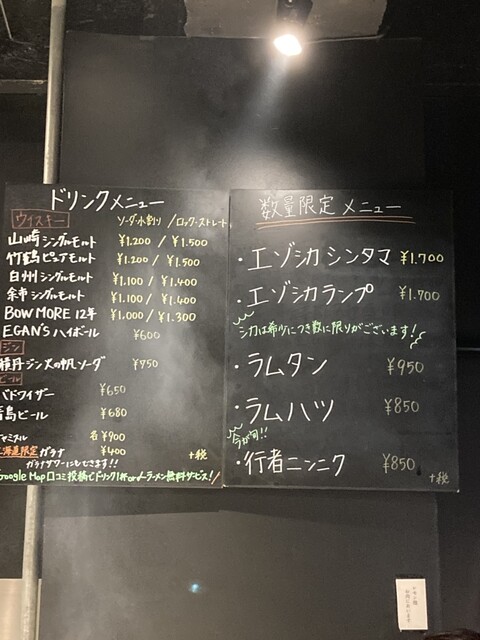 ドリンクメニュー
ウイスキー ソーダ・水割り / ロック・ストレート
山崎 シングルモルト ¥1.200 / ¥1.500
竹鶴 ピュアモルト ¥1.200 / ¥1.500
白州 シングルモルト ¥1.100 / ¥1.400
余市 シングルモルト ¥1.100 / ¥1.400
BOWMORE 12年 ¥1.000 / ¥1.300
EGAN'S ハイボール ¥600
ジン
積丹ジン火の帆ソーダ ¥750
ビール
バドワイザー ¥650
青島ビール ¥680
各¥900
北海道限定 ガラナ ¥400
ガラナサワーにもできます!! +税
Google Map口コミ投稿でドリンク1杯orラーメン無料サービス!
数量限定 メニュー
・エゾシカシンタマ ¥1.700
・エゾシカランプ ¥1.700
シカは希少につき数に限りがございます!
・ラムタン ¥950
・ラムハツ ¥850
今が旬!!
・行者ニンニク ¥850
+税